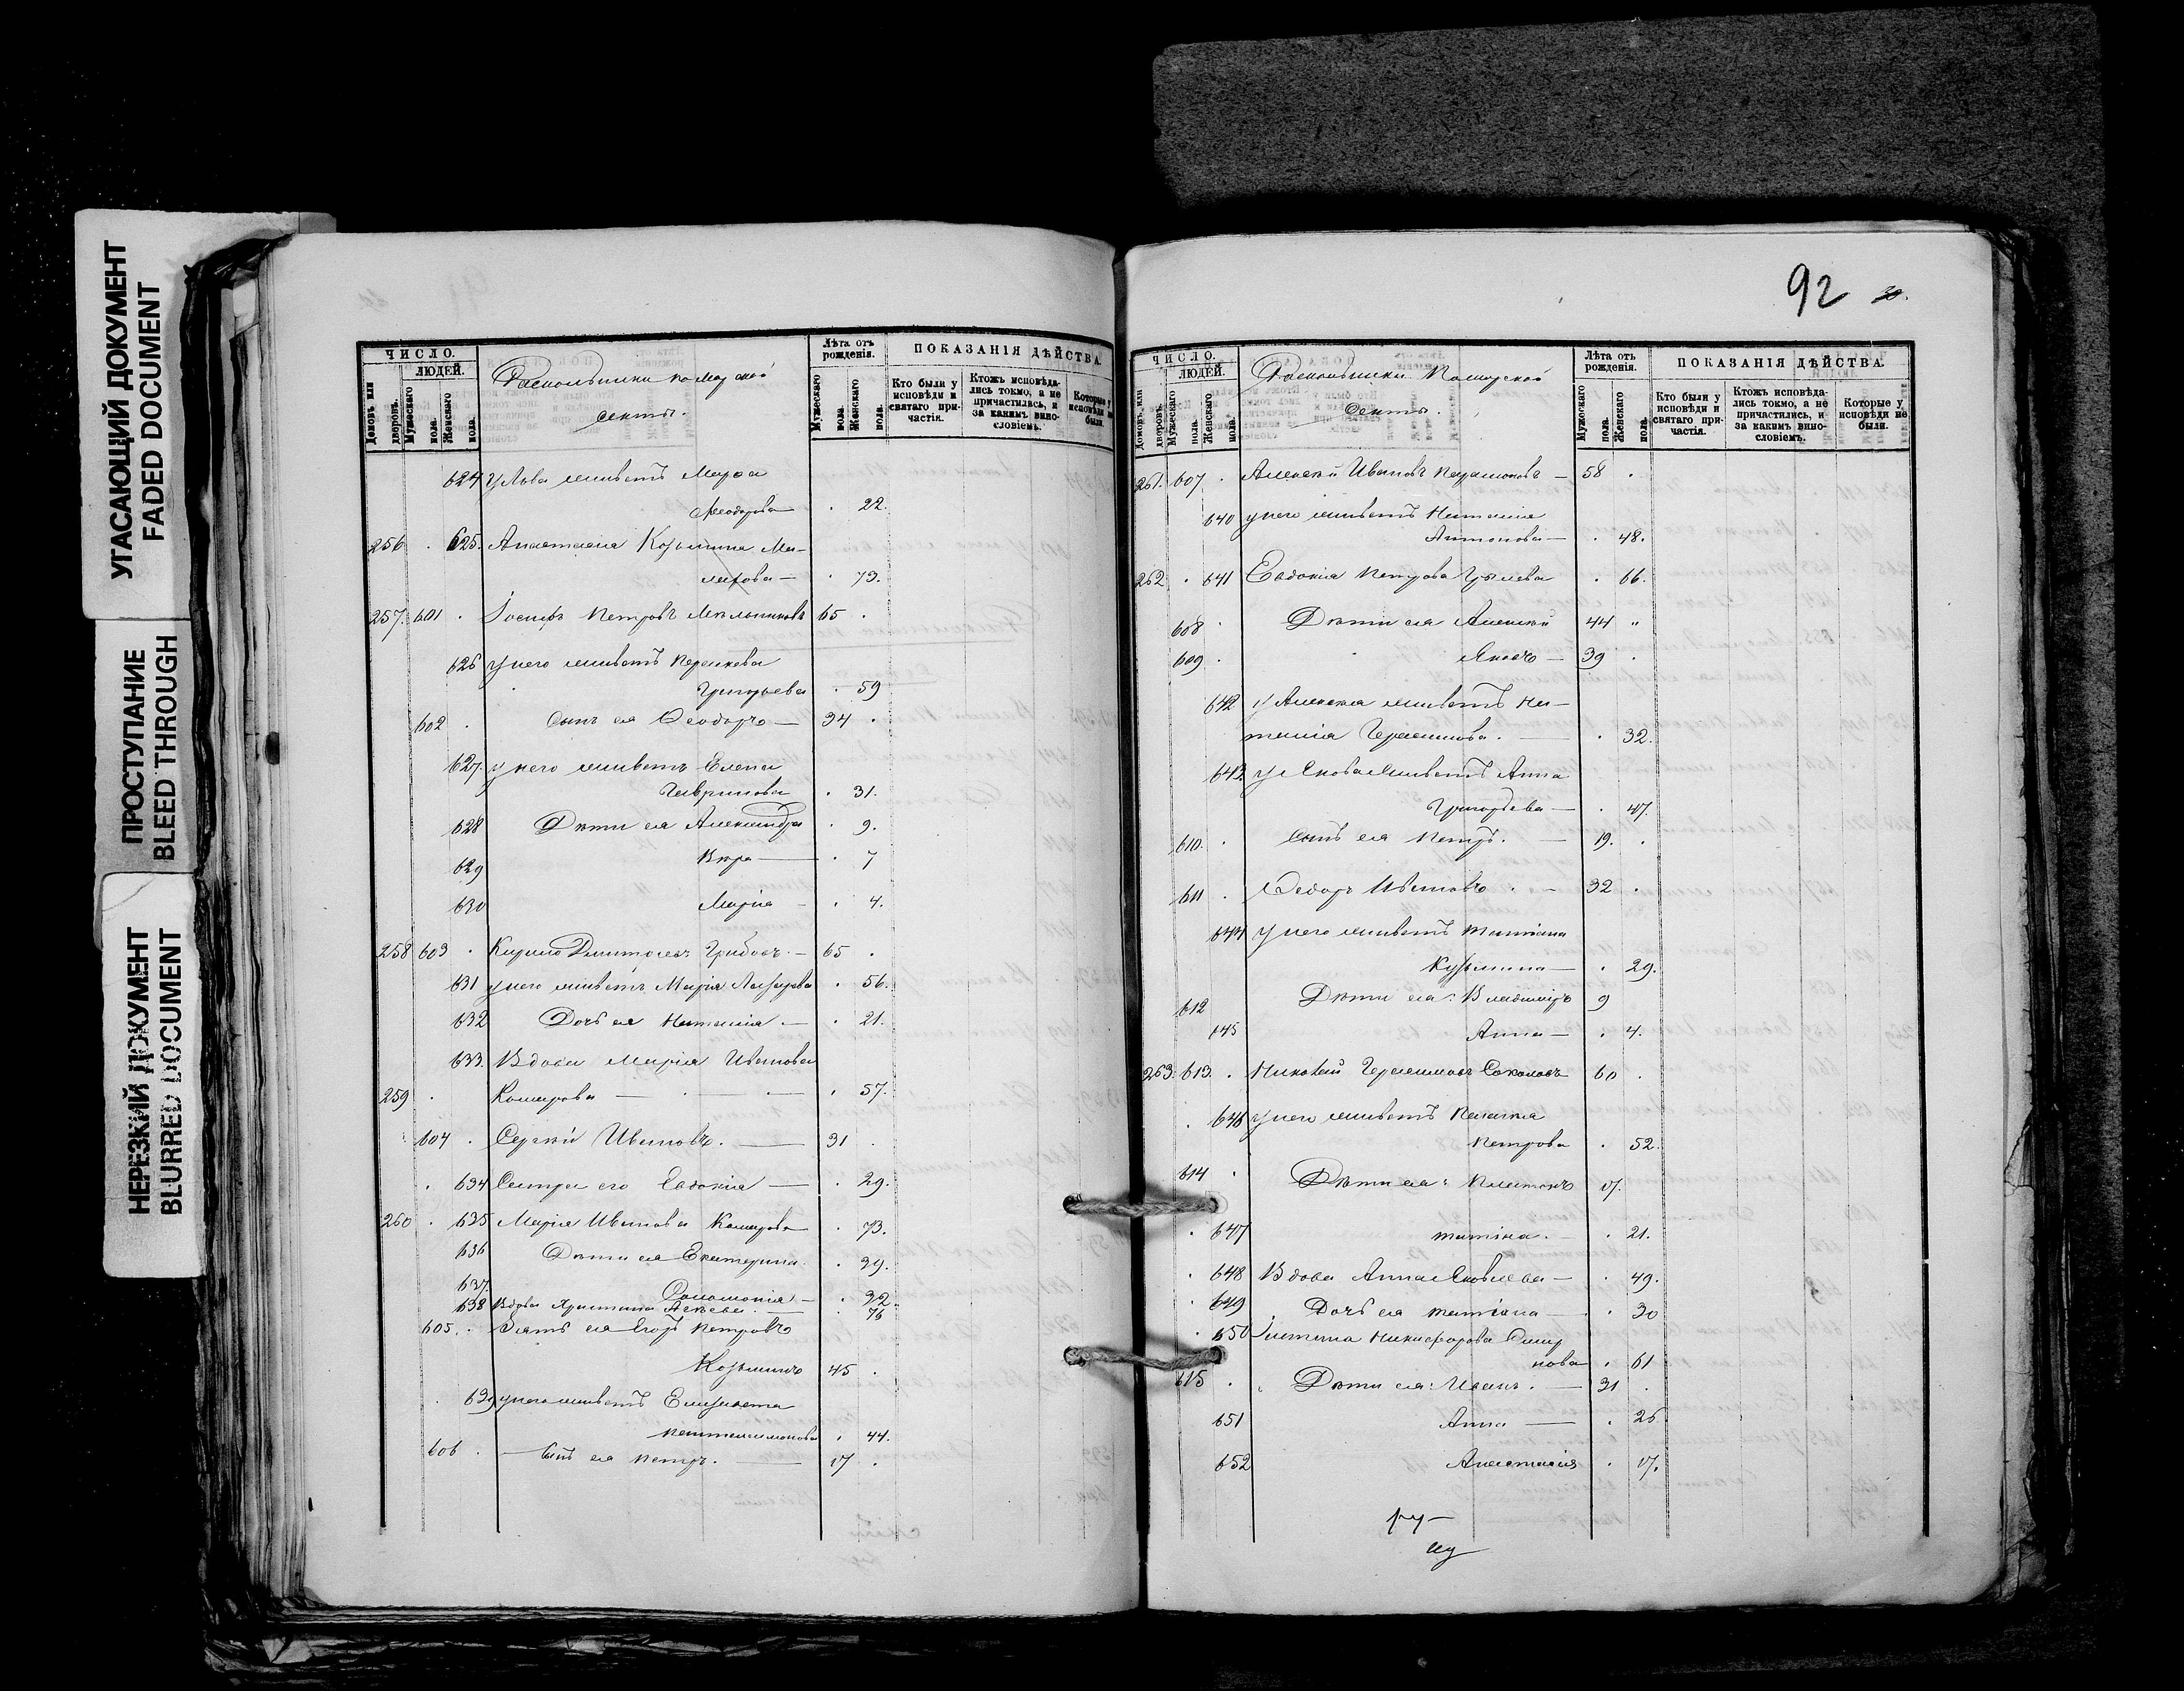 УГАСАЮЩИЙ ДОКУМЕНТ
FADED DOCUMENT
ПРОСТУПАНИЕ
BLEED THROUGH
НЕРЕЗКИЙ ДОКУМЕНТ
BLURRED DOCUMENT
ЧИСЛО.
ЛЮДЕЙ.
Домовъ или дворовъ.
Мужескаго пола.
Женскаго пола.
Раскольники поморской
секты.
Лѣта отъ рожденія.
Мужескаго пола.
Женскаго пола.
ПОКАЗАНІЯ ДѢЙСТВА.
Кто были у исповѣди и святаго причастія.
Ктожъ исповѣдались токмо, а не причастились, и за какимъ винословіемъ.
Которые у исповѣди не были.
624 у Льва живетъ Марѳа
Ѳеодорова — 22.
256 625. Анастасія Козьмина Ма-
— 73.
257. 601 Іосифъ Петровъ Мельниковъ 65
626 у него живетъ
Григорьева 59
602 сынъ ея Ѳеодоръ — 34
627. у него живетъ Елена
Гаврилова 31.
628 Дѣти ея Александра 9.
629 Вѣра — 7
630 Марія — 4.
258 603 Кирилъ Дмитріевъ Грибовъ. — 65
631 у него живетъ Марія Лазарева 56.
632 Дочь ея Наталія. — 21.
633. Вдова Марія Иванова
259 Комарова — 57.
604 Сергѣй Ивановъ. — 31
634 Сестра его Евдокія — 29.
260 635 Марія Иванова Комарова 73.
636 Дѣти ея Екатерина. 39.
637. Соломонія — 32.
638 Вдова Христина — 76
605. Зять ея Егоръ Петровъ
Козьминъ 45
639 у него живетъ Елизавета
Пантелимонова 44.
606 — Сынъ ея Петръ. — 17
92 30.
ЧИСЛО.
ЛЮДЕЙ.
Домовъ или дворовъ.
Мужескаго пола.
Женскаго пола.
Раскольники Поморской
секты.
Лѣта отъ рожденія.
Мужескаго пола.
Женскаго пола.
ПОКАЗАНІЯ ДѢЙСТВА.
Кто были у исповѣди и святаго причастія.
Ктожъ исповѣдались токмо, а не причастились, и за какимъ винословіемъ.
Которые у исповѣди не были.
261. 607 Алексѣй Ивановъ Парамоновъ — 58
640 у него живетъ Наталія
Антонова — 48.
262 641 Евдокія Петрова 66.
608 Дѣти ея Алексѣй 44 "
609 Яковъ — 39
642 у Алексѣя живетъ На-
талія Герасимова. — 32.
643. у Якова живетъ Анна
Григорьева — 47.
610. Сынъ ея Петръ. — 19.
611 Ѳедоръ Ивановъ — 32
644 у него живетъ Татіана
Кузьмина — 29.
612 Дѣти ея: Владиміръ 9
645 Анна — 4.
263. 613. Николай Герасимовъ Соколовъ 60
646 у него живетъ Пелагія
Петрова 52.
614 Дѣти ея: Платонъ 17.
647 Татіана. — 21.
648 Вдова Анна Яковлева — 49.
649 Дочь ея Татіана — 30
650 Никифорова Смир
нова 61
615 Дѣти ея: Иванъ. — 31
651 Анна — 26
652 Анастасія 17.